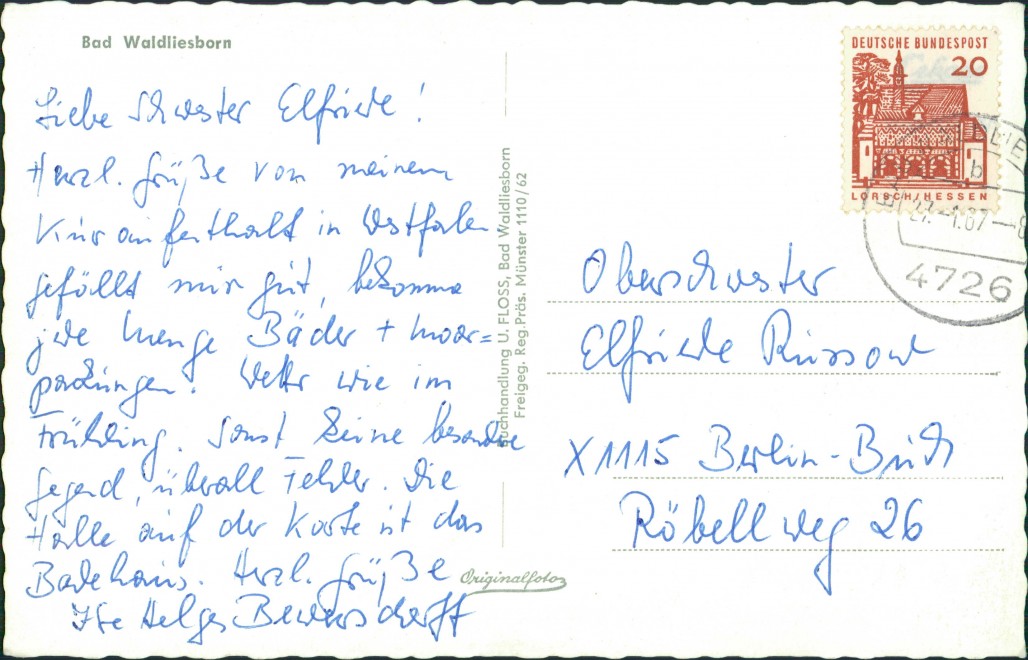 Bad Waldliesborn
Liebe Schwester Elfriede!
Herzl. Grüße von meinem
Kuraufenthalt in Westfalen
gefällt mir gut, bekomme
jede Menge Bäder + Moor=
packungen. Wetter wie im
Frühling. Sonst keine besondere
Gegend, überall Felder. Die
Halle auf der Karte ist das
Badehaus. Herzl. Grüße
Ihre Helga
Buchhandlung U. FLOSS, Bad Waldliesborn
Freigeg. Reg. Präs. Münster 1110/62
Originalfoto
DEUTSCHE BUNDESPOST
20
LORSCH/HESSEN
b
4726
Oberschwester
Elfriede Russow
X 1115 Berlin-Buch
Röbellweg 26